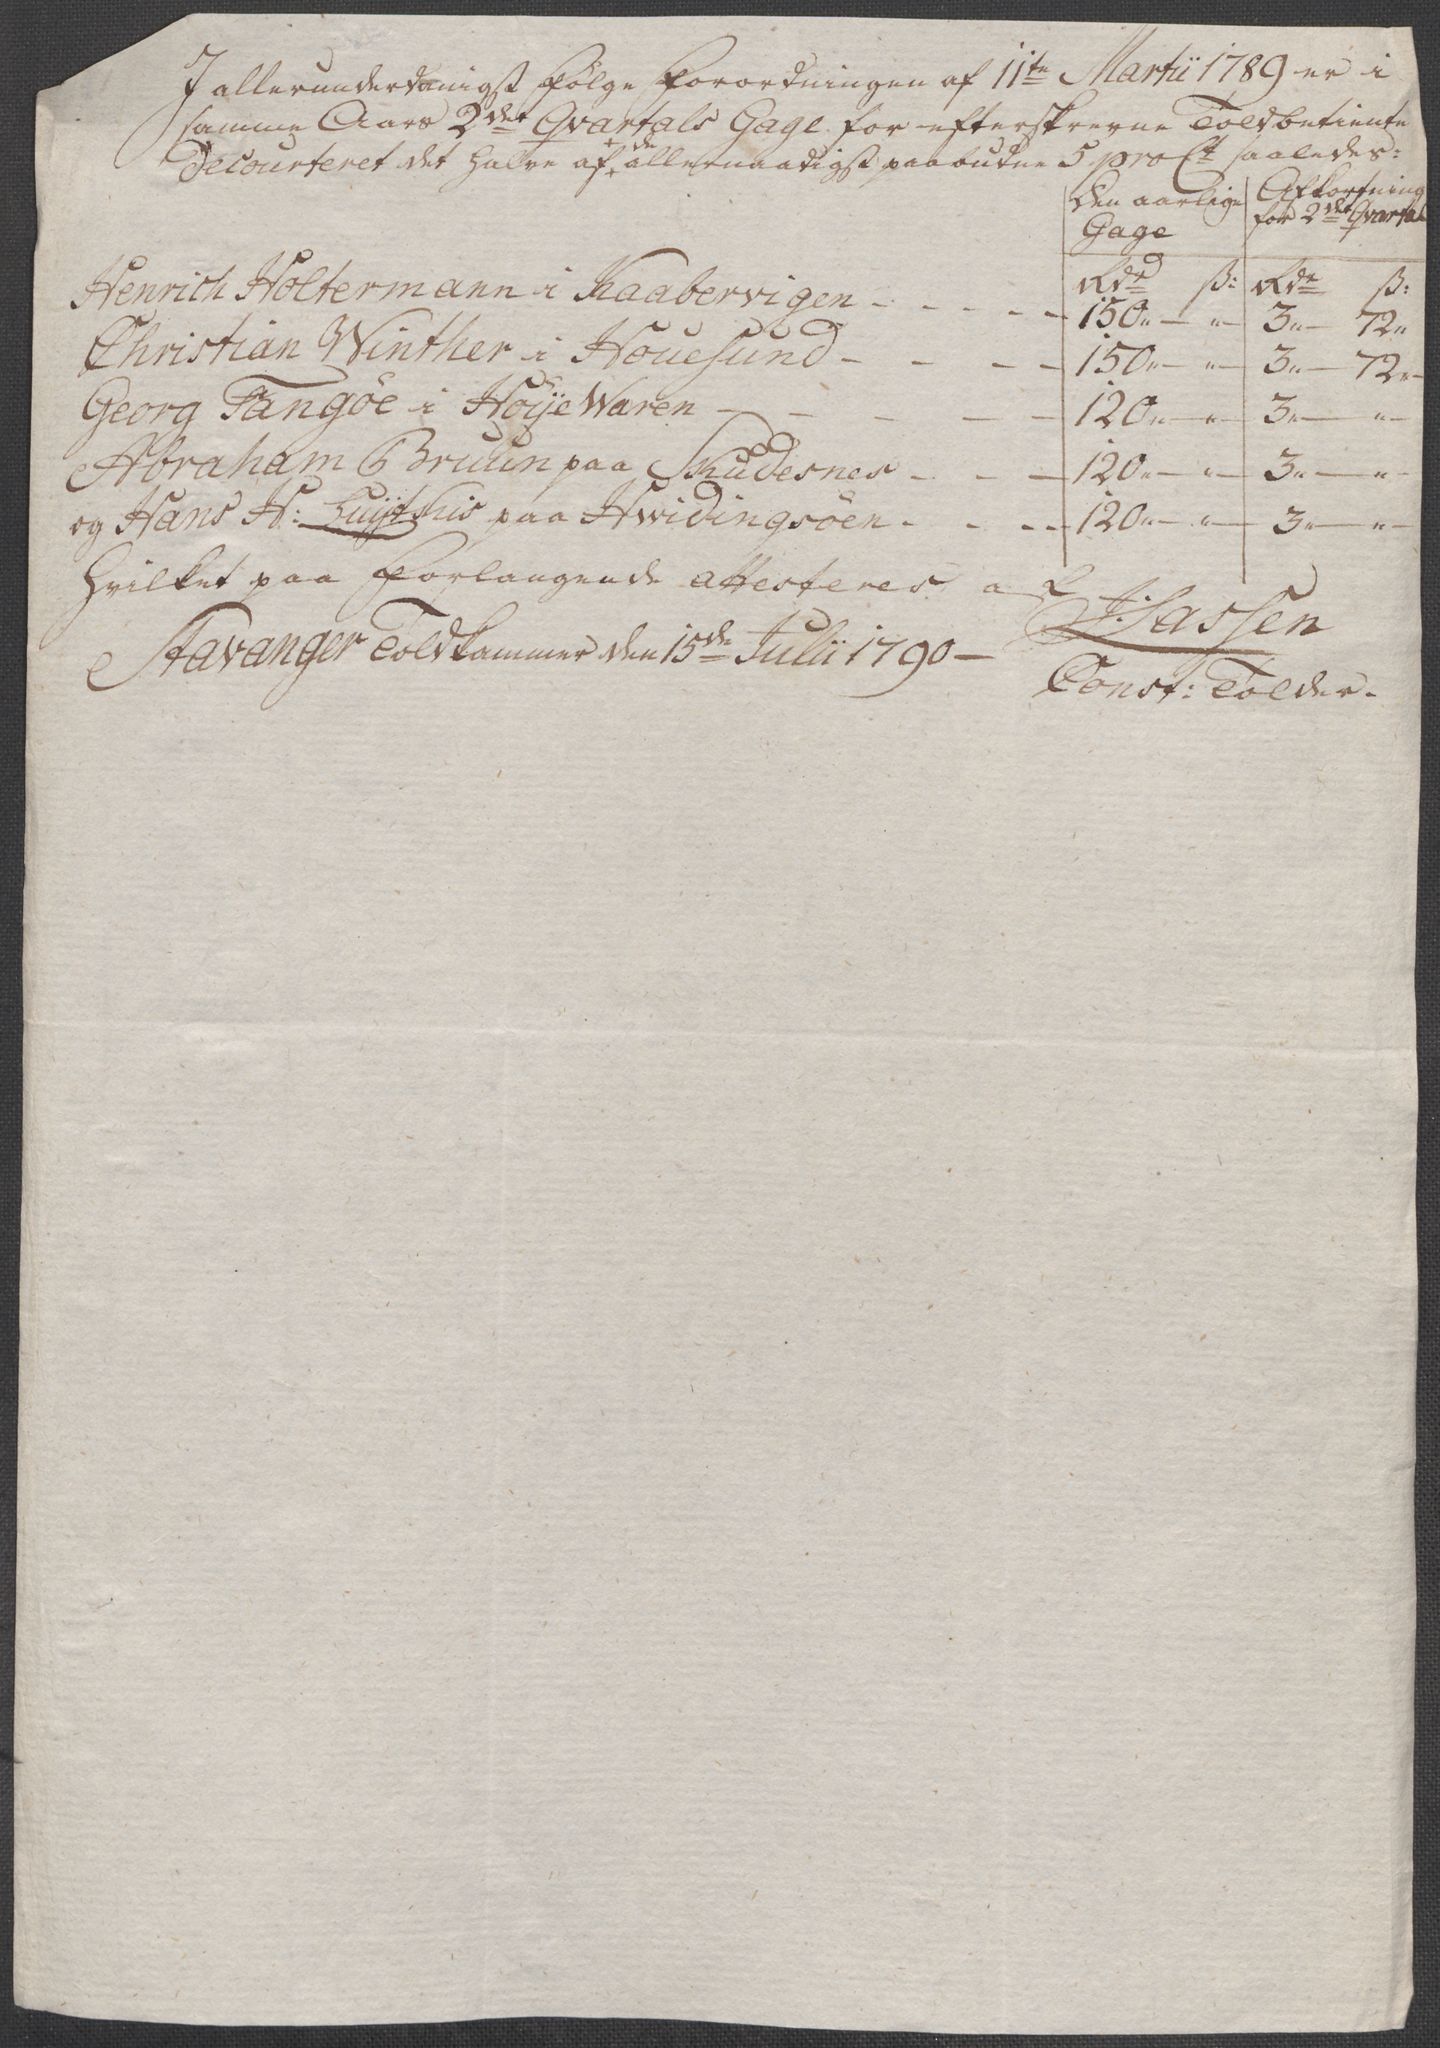 I allerunderdanigst Følge Forordningen af 11te Martii 1789 er i
samme Aars 2det Qvartals Gage for efterskrevne Toldbetiente
decourteret det halve af de allernaadigst paabudne 5 pro Ct saaledes:
den aarlige Gage | Afkortning for 2det Qvartal
Rdr ß: | Rdr ß:
Henrich Holtermann i Kaabervigen - - - - - 150" - " - 3" - 72"
Christian Winther i Houesund - - - - 150" - " - 3" - 72" -
Georg Tangöe i Höije Waren - - - - - 120" - " - 3" - " -
Abraham Bruun paa Skudesnes - - - 120" - " - 3" - " -
og Hans H: paa Hwidingsöen - - - - 120" - " - 3" - " -
Hvilket paa Forlangende attesteres af
Stavanger Toldkammer den 15de Julii 1790 -
J: Sassen
Const: Tolder.